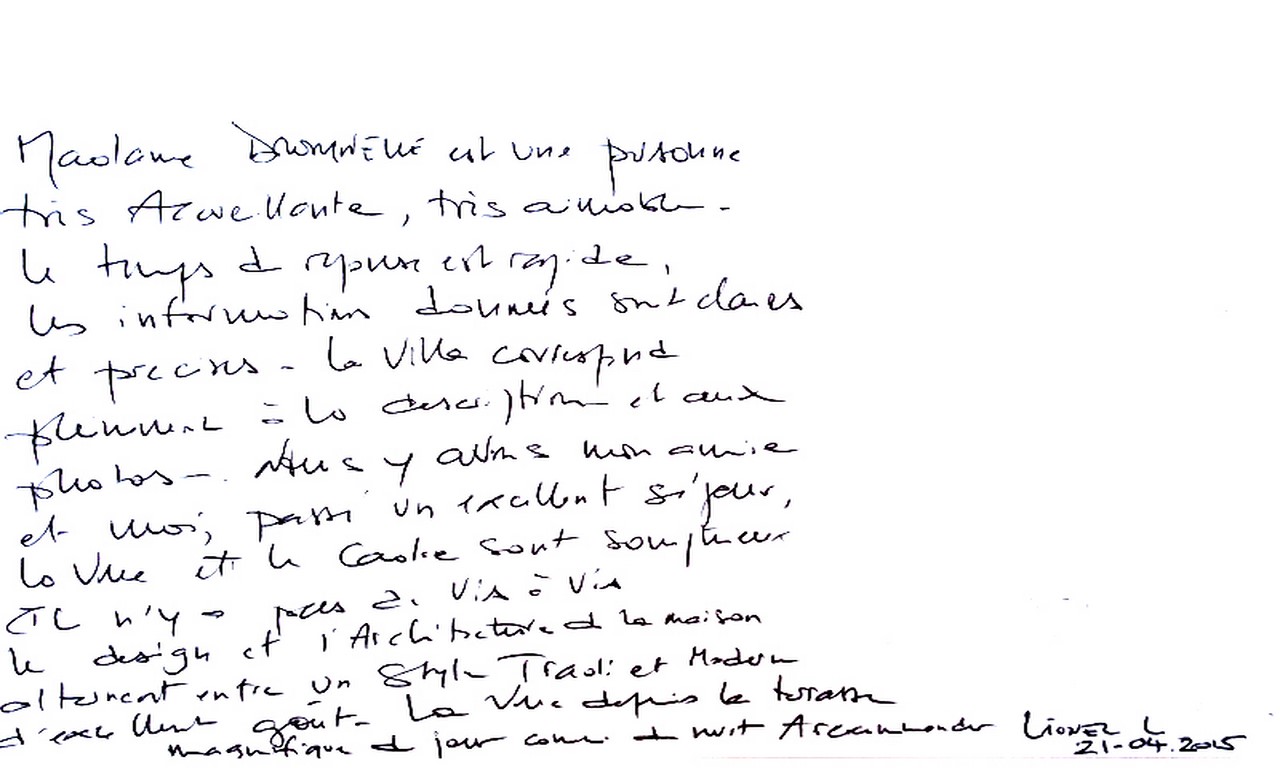 Madame est une personne
très Accueillante, très aimable -
le temps de réponse est rapide,
les information données sont claires
et precises - la villa correspond
pleinement à la description et aux
photos - Nous y avons mon amie
et moi, passé un excellent séjour,
la vue et le cadre sont somptueux
et il n'y a pas de vis à vis
le design et l'Architecture de la maison
alternent entre un Style Tradi et Modern
d'excellent goût - La vue depuis la terrasse
magnifique de jour comme de nuit A recommander Lionel L
21-04.2015